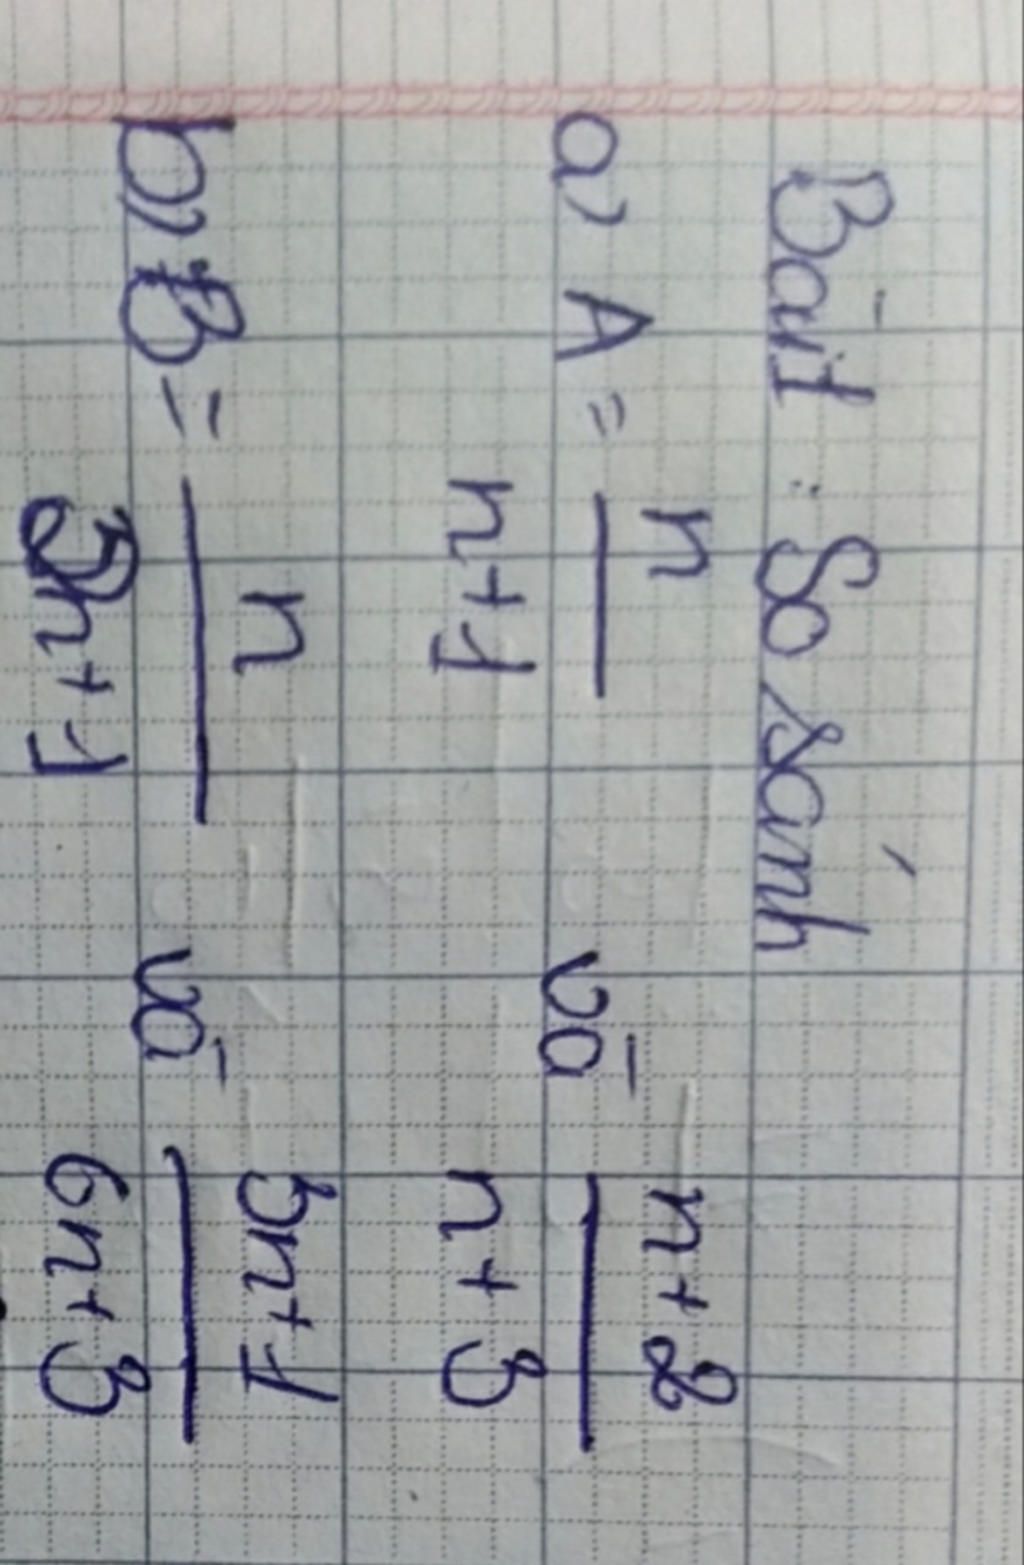 Bài 1 : So sánh
a) A = n/n+1 và n+2/n+3
b) B = n/3n+1 và 3n+1/6n+3